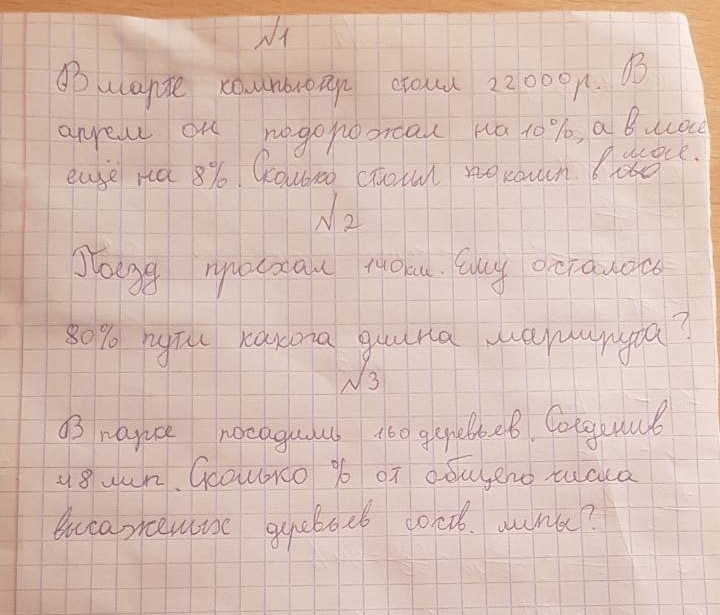 N1
В марте компьютер стоил 22000р. В
апреле он подорожал на 10%, а в мае
ещё на 8%. Сколько стоил комп. в
мае.
N2
Поезд проехал 140км. Ему осталось
80% пути какога длина маршрута?
N3
В парке посадили 160 деревьев.
48 лип. Сколько % от общего числа
высаженых деревьев сосв. липы?